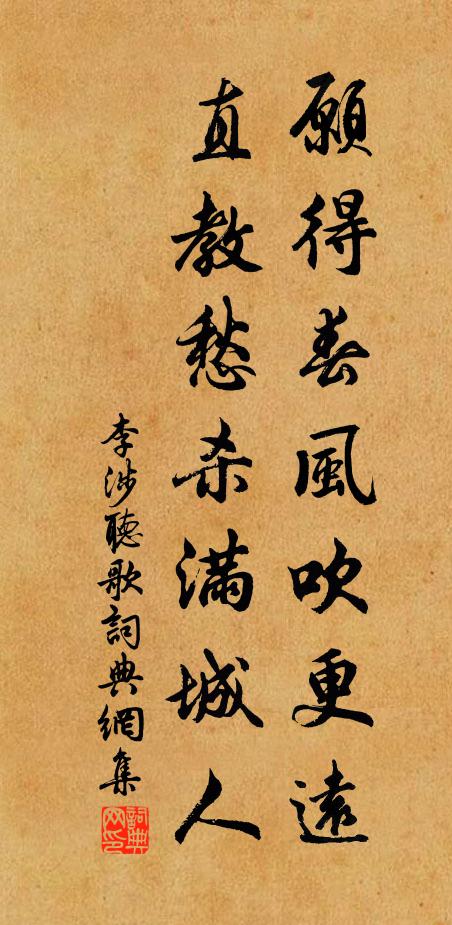 願得春風吹更遠
直教愁杀滿城人
李涉聽歌詞典網集
詞典网印